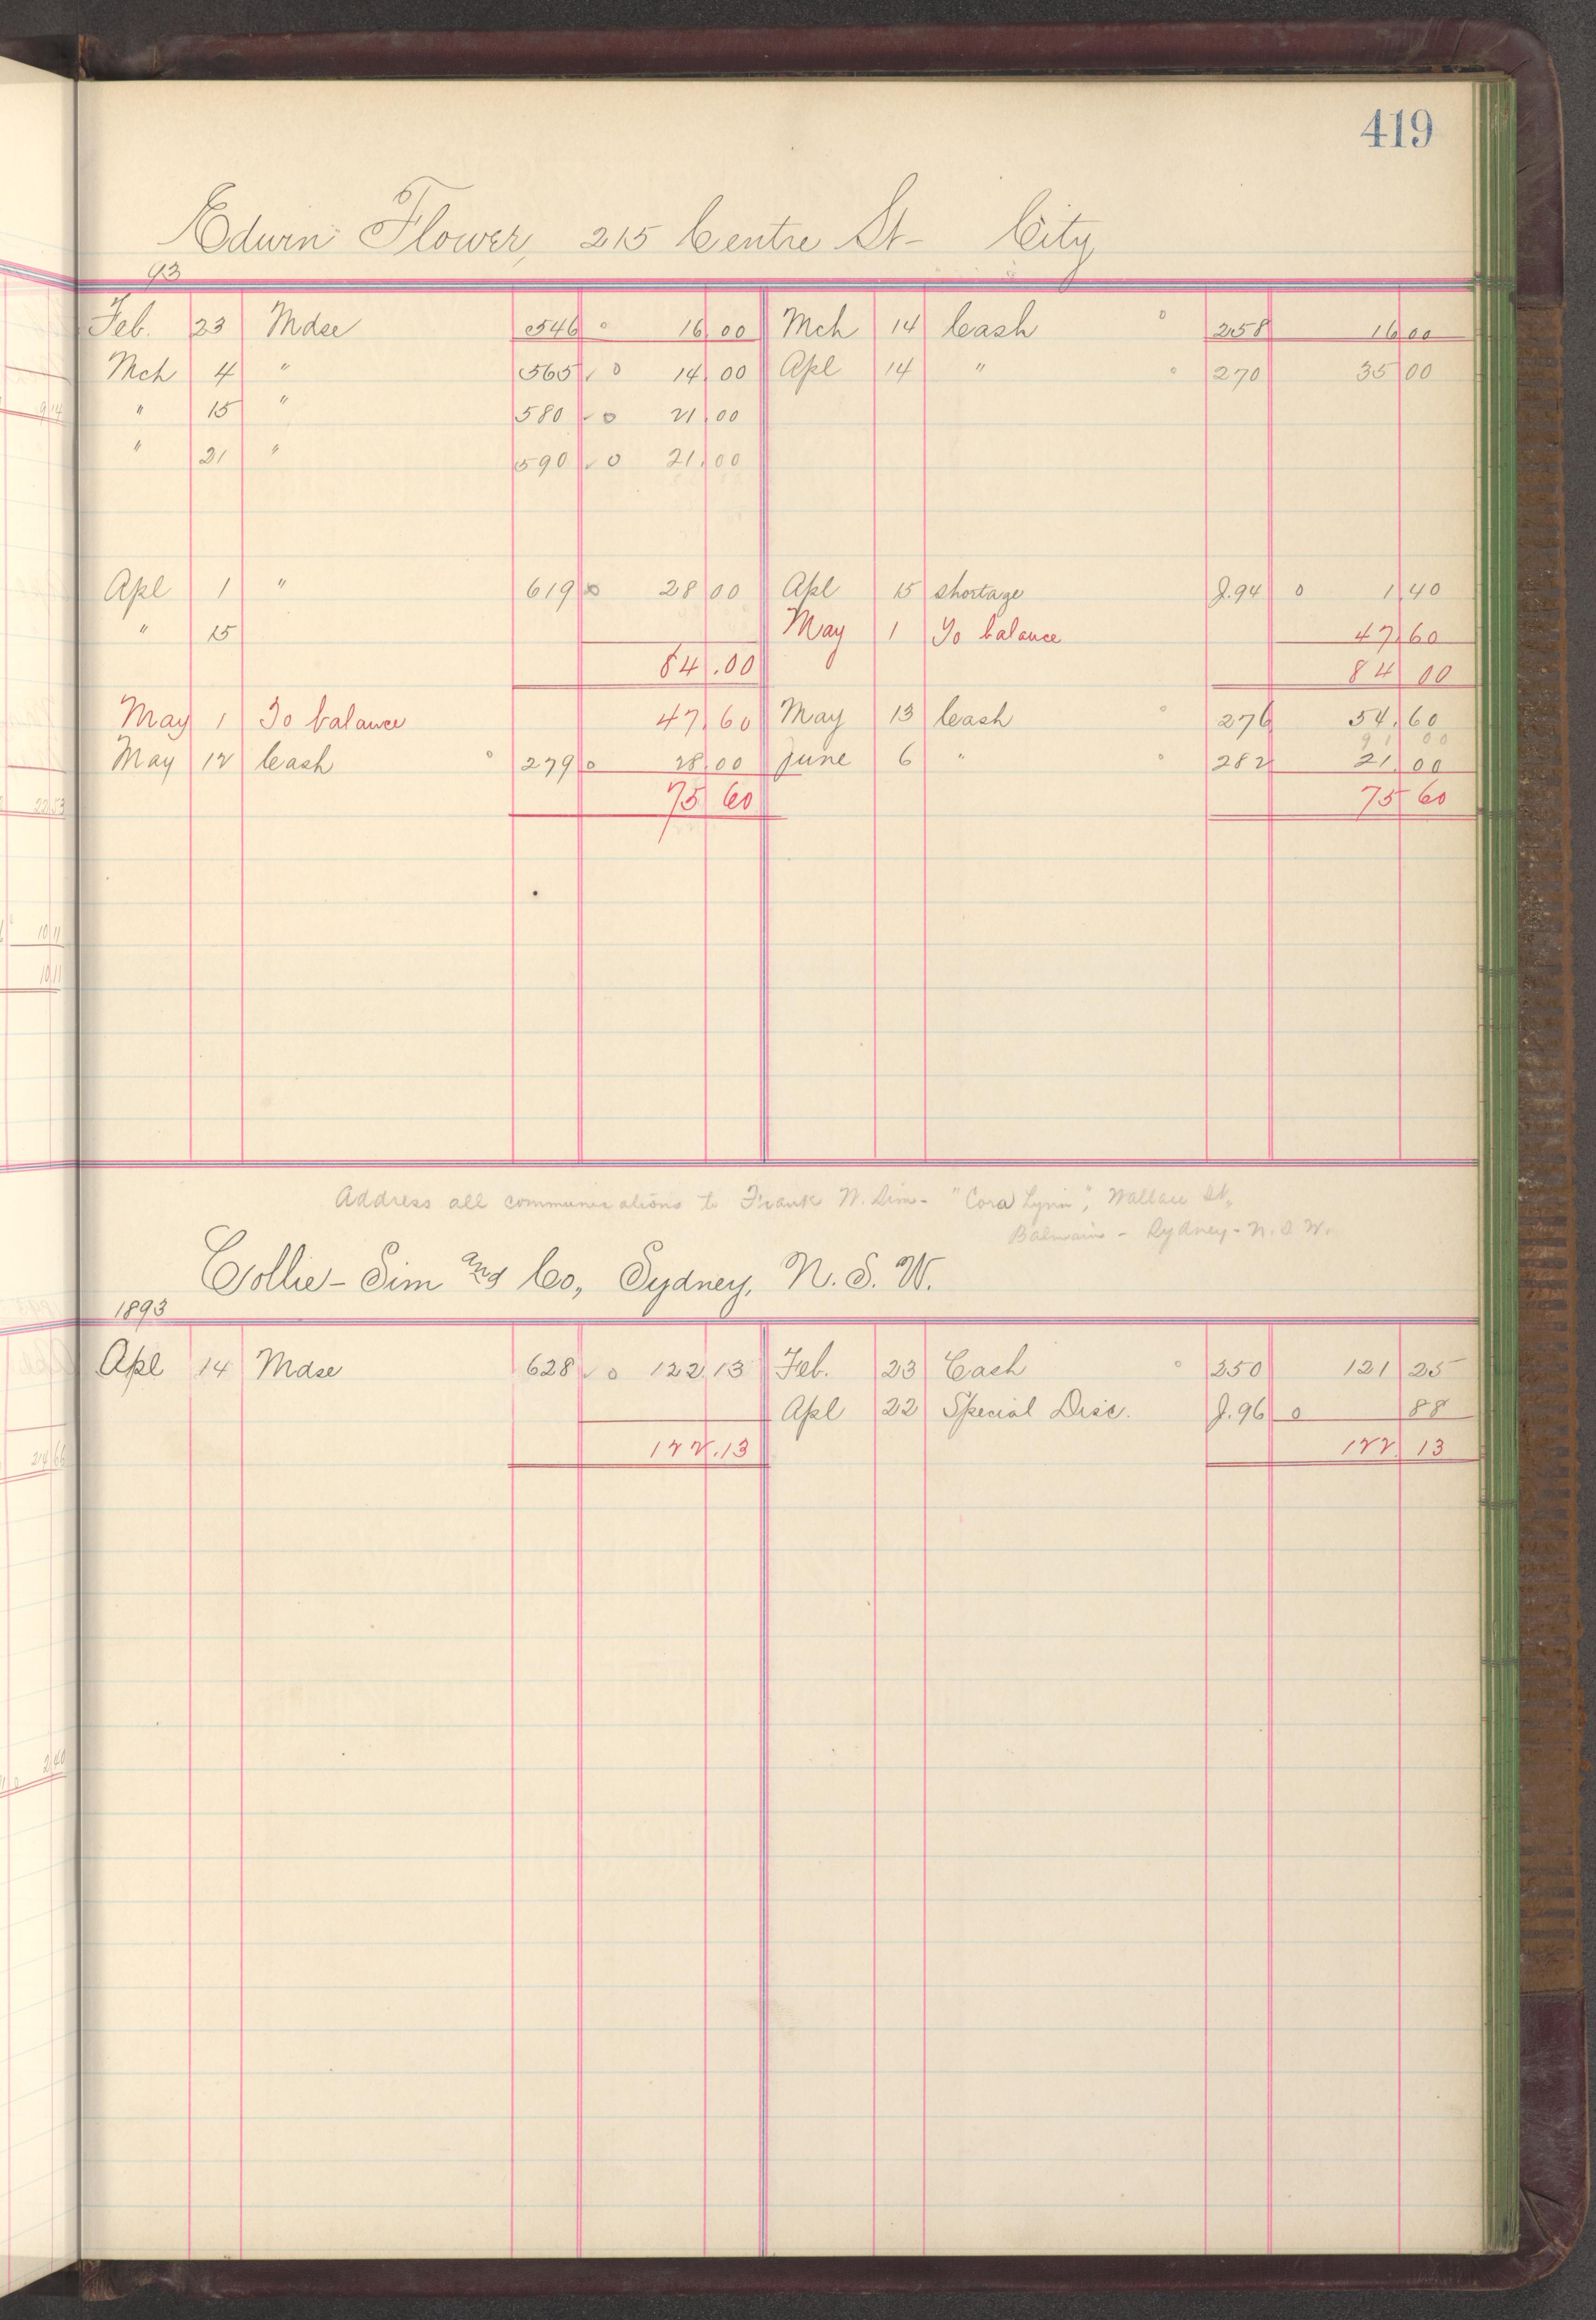 419
Edwin Flower, 215 Centre St- City
93
Feb. 23 Mdse 546 o 16.00 Mch 14 Cash o 258 16 00
Mch 4 " 565 ✓ o 14.00 Apl 14 " o 270 35 00
" 15 " 580 ✓ o 21.00
" 21 " 590 ✓ o 21.00
Apl 1 " 619 o 28 00 Apl 15 shortage J.94 o 1.40
" 15 May 1 To balance 47.60
84.00 84 00
May 1 To balance 47.60 May 13 Cash o 276 54.60
91 00
May 12 Cash o 279 o 28.00 June 6 " o 282 21.00
75 60 75 60
Address all communications to Frank W. Sim - "Cora Lynn", Wallace St,
Balmain - Sydney - N.S.W.
Collie - Sim and Co, Sydney, N. S. W.
1893
Apl 14 Mdse 628 ✓ o 122.13 Feb. 23 Cash o 250 121 25
Apl 22 Special Disc. J.96 o 88
122.13 122.13